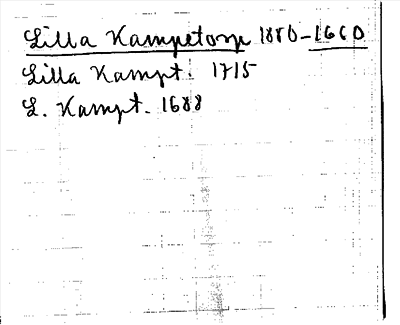 Lilla Kampetorp 1880-1660
Lilla Kampt. 1715
L. Kampt. 1688